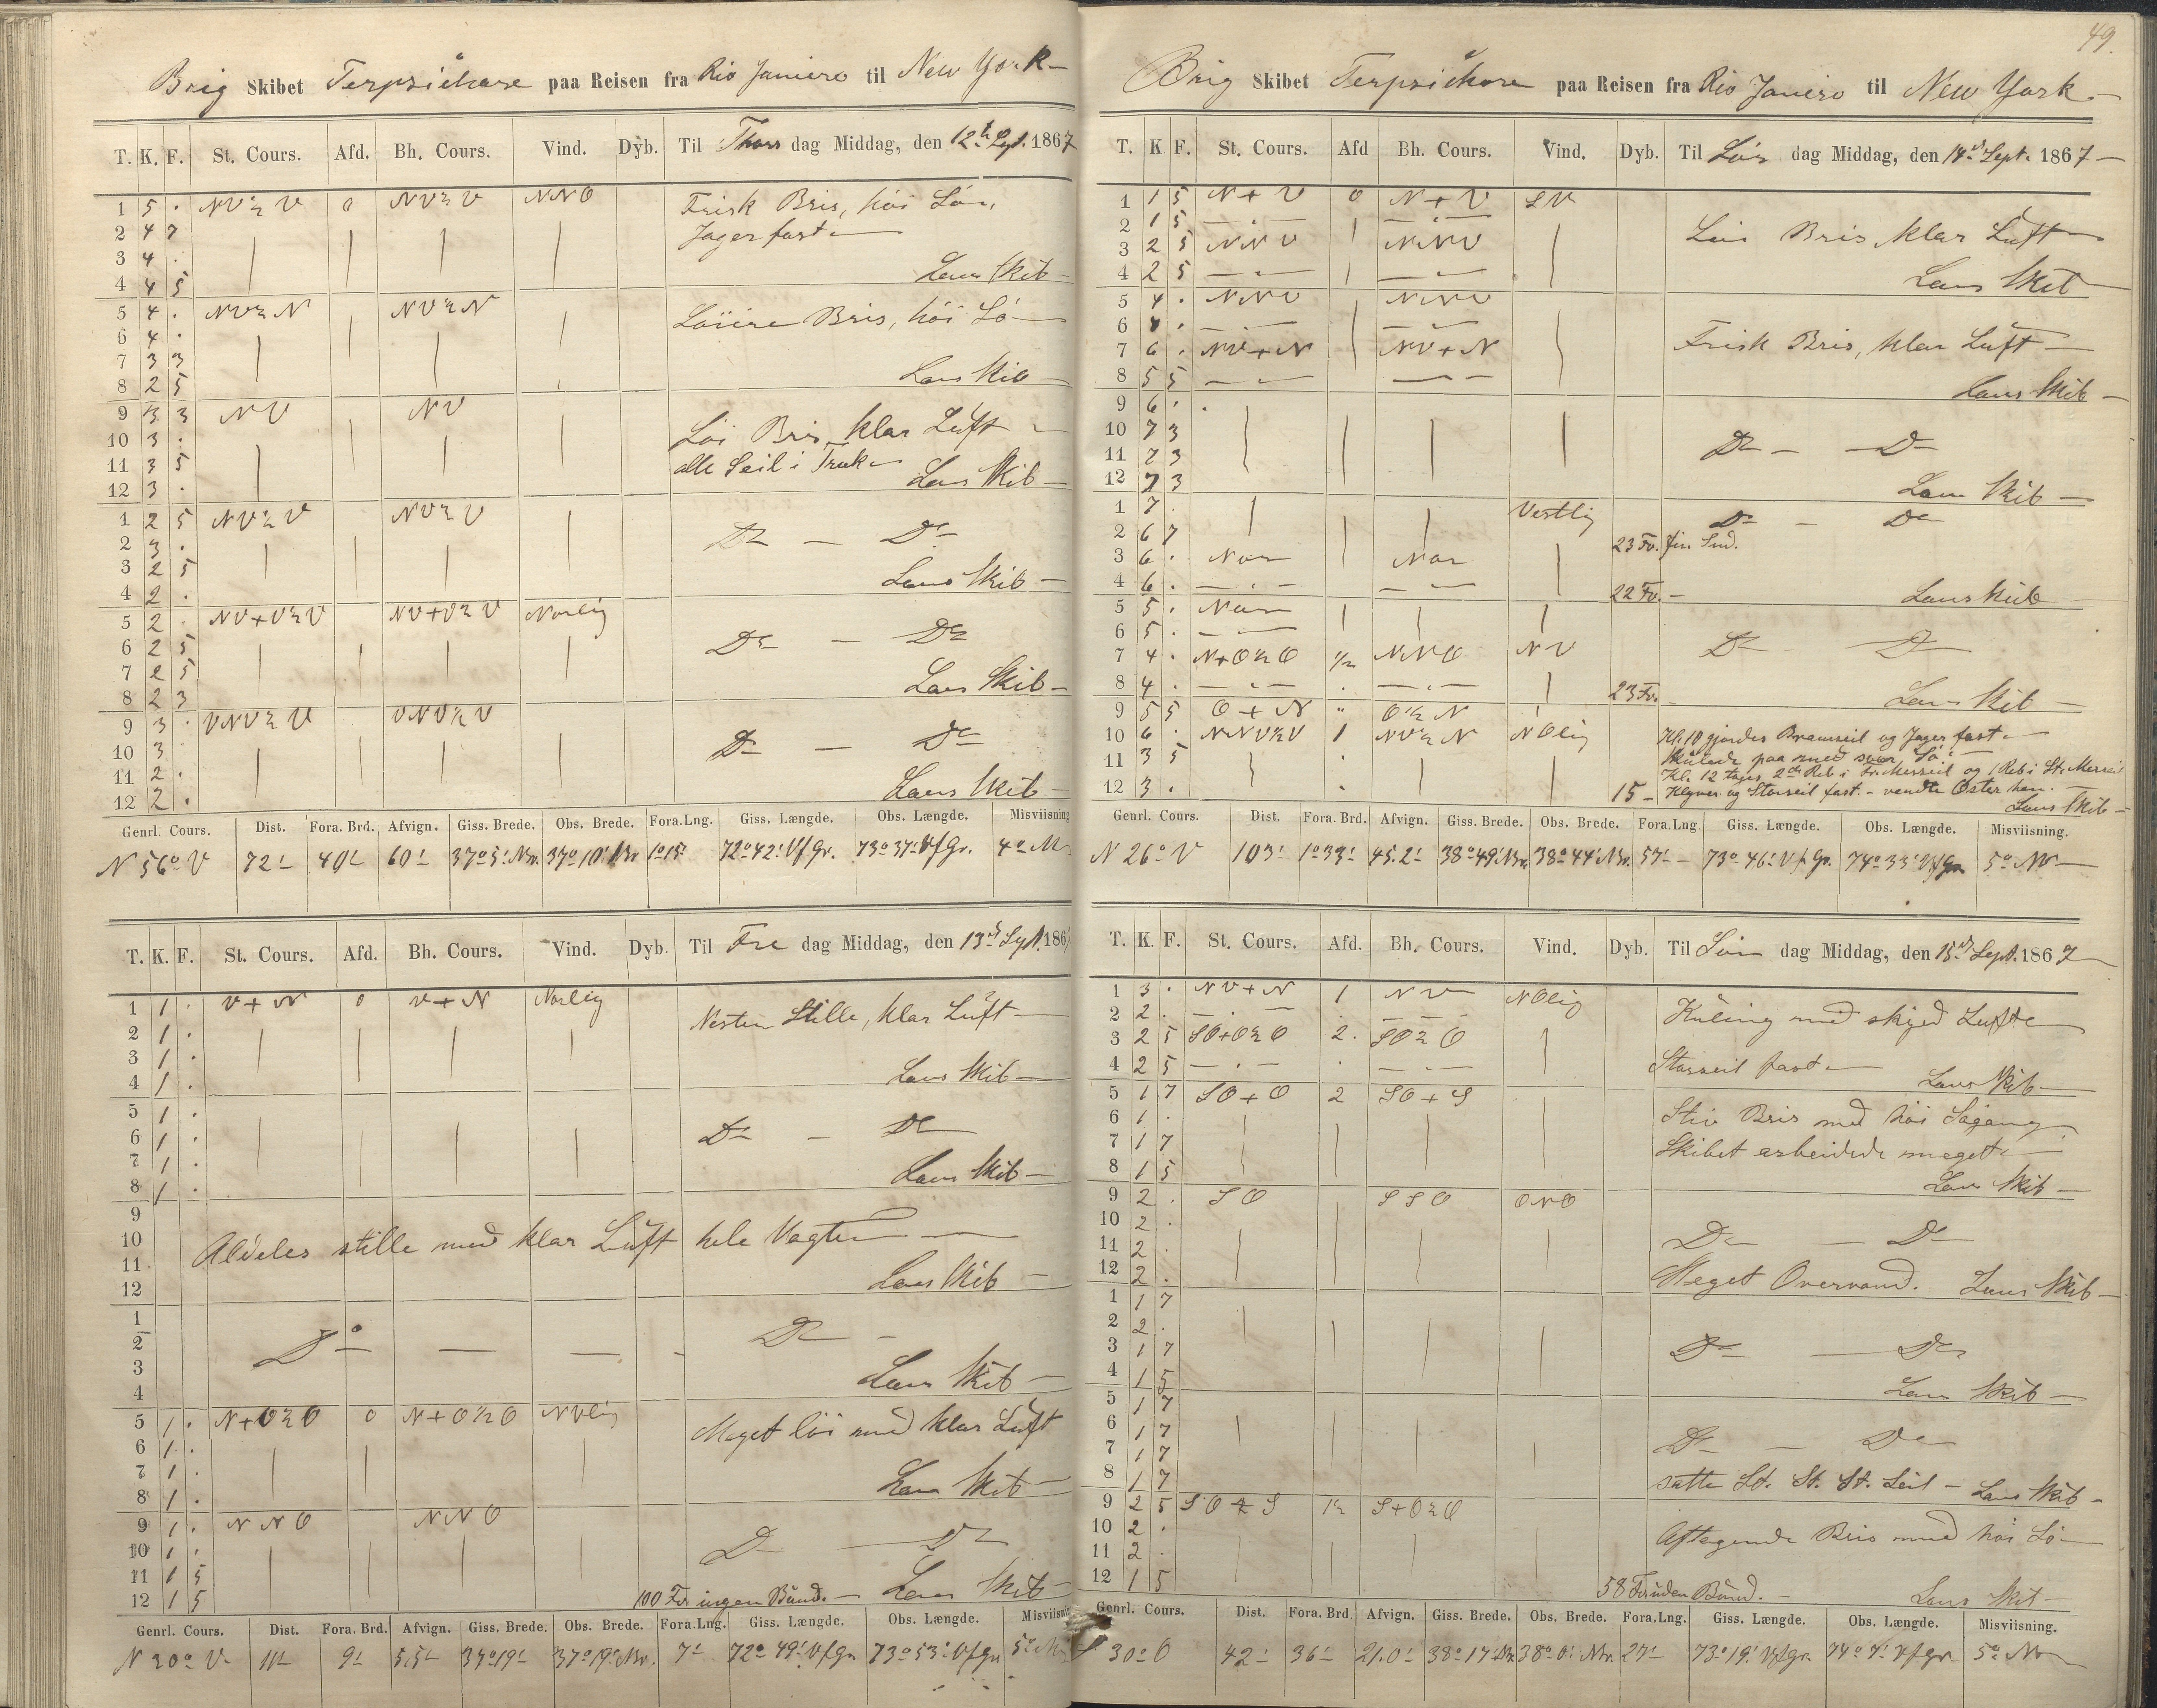 Brig Skibet Terpsichore paa Reisen fra Rio Janiero til New York
T. K. F. St. Cours. Afd. Bh. Cours. Vind. Dyb. Til Thors dag Middag, den 12te Sept. 1867
1 5 . NV½V 0 NV½V NNO Frisk Bris, høi Sø
2 4 7 Jager fast
3 4 .
4 4 5 Lens Skib
5 4 . NV½N NV½N Løiere Bris, høi Sø
6 4 .
7 3 3
8 2 5 Lens Skib
9 3 3 NV NV
10 3 . Løi Bris, klar Luft
11 3 5 alle Seil i Træk
12 3 . Lens Skib
1 2 5 NV½V NV½V
2 3 . Do — Do
3 2 5 Lens Skib
4 2 .
5 2 . NV+V½V NV+V½V Norlig
6 2 5 Do — Do
7 2 5
8 2 3 Lens Skib
9 3 . VNV½V VNV½V
10 3 . Do — Do
11 2 .
12 2 . Lens Skib
Genrl. Cours. Dist. Fora. Brd. Afvign. Giss. Brede. Obs. Brede. Fora.Lng. Giss. Længde. Obs. Længde. Misviisning
N 56° V 72' 40' 60' 37°5' Nbr. 37°10' Nbr 1°15' 72°42' V f Gr. 73°37' V f Gr. 4°
T. K. F. St. Cours. Afd. Bh. Cours. Vind. Dyb. Til Fre dag Middag, den 13de Sept. 186
1 1 . V+N 0 V+N Norlig Nesten Stille, klar Luft
2 1 .
3 1 .
4 1 . Lens Skib
5 1 .
6 1 . Do — Do
7 1 .
8 1 . Lens Skib
9
10 Aldeles stille med klar Luft hele Vagten
11
12 Lens Skib
1
2 Do — — - Do
3
4 Lens Skib
5 1 . N+O½O 0 N+O½O NVlig Meget løi med klar Luft
6 1 .
7 1 .
8 1 . Lens Skib
9 1 . NNO NNO
10 1 . Do — Do
11 1 5
12 1 5 100 Fv. ingen Bund. — Lens Skib
Genrl. Cours. Dist. Fora. Brd. Afvign. Giss. Brede. Obs. Brede. Fora.Lng. Giss. Længde. Obs. Længde. Misviisni
N 30° V 11' 9' 5,5' 37°19' 37°19' Nbr. 7' 72°49' V f Gr 73°53' V f Gr 5°
49.
Brig Skibet Terpsichore paa Reisen fra Rio Janiero til New York
T. K F. St. Cours. Afd Bh. Cours. Vind. Dyb. Til Lør dag Middag, den 14de Sept. 1867
1 1 5 N+V 0 N+V SV
2 1 5 — . — — . — Løi Bris, klar Luft
3 2 5 NNV NNV
4 2 5 — . — — . — Lens Skib
5 4 . NNV NNV
6 4 . — . — — . — Frisk Bris, klar Luft
7 6 . NV+N NV+N
8 5 5 — . — — . — Lens Skib
9 6 .
10 7 3 Do — Do
11 7 3
12 7 3 Lens Skib
1 7 . Vestlig Do — Do
2 6 7 23 Fv. fin Snd.
3 6 . Nor Nor
4 6 . — . — — — 22 Fv. — Lens Skib
5 5 . Nor
6 5 . — . — Do — Do
7 4 . N+O½O ½ NNO NV
8 4 . — . — . — . — 23 Fv. Lens Skib
9 5 5 O+N " O½N
10 6 . NNV½V 1 NV½N NOlig Kl. 10 gjordes Bramseil og Jager fast
11 3 5 Kulede paa med svær Sø
Kl. 12 toges 2de Reb i Fr. Merseil og 1 Reb i St. Merseil
12 3 . 15 — Klyver og Storseil fast. — vendte Øster hen.
Lens Skib
Genrl. Cours. Dist. Fora. Brd. Afvign. Giss. Brede. Obs. Brede. Fora.Lng Giss. Længde. Obs. Længde. Misviisning.
N 26° V 103' 1°33' 45.2' 38°49' Nbr. 38°44' Nbr. 57' 73°46' V f Gr. 74°33' V f Gr 5° NV
T. K. F. St. Cours. Afd. Bh. Cours. Vind. Dyb. Til Søn dag Middag, den 15de Sept. 1867
1 3 . NV+N 1 NV NOlig Kuling med skyed Luft
2 2 . — . — — . —
3 2 5 SO+O½O 2. SO½O
4 2 5 — . — . — . — Storseil fast Lens Skib
5 1 7 SO+O 2 SO+S Stiv Bris med høi Søgang
6 1 .
7 1 7 Skibet arbeidede meget
8 1 5 Lens Skib
9 2 . SO SSO ONO
10 2 . Do — Do
11 2 .
12 2 . Meget Overvand. Lens Skib
1 1 7
2 2 .
3 1 7 Do — Do
4 1 5 Lens Skib
5 1 7
6 1 7 Do — Do
7 1 7
8 1 7 satte St. St. St. Seil — Lens Skib
9 2 5 SO½S 1½ S+O½O
10 2 . Aftagende Bris med høi Sø
11 2 .
12 1 5 58 Fv. uden Bund. — Lens Skib
Genrl. Cours. Dist. Fora. Brd Afvign. Giss. Brede. Obs. Brede. Fora.Lng. Giss. Længde. Obs. Længde. Misviisning.
S 30° O 42' 36' 21.0' 38°17' Nbr 38°0' Nbr. 27' 73°19' V f Gr. 74°7' V f Gr 5° NV